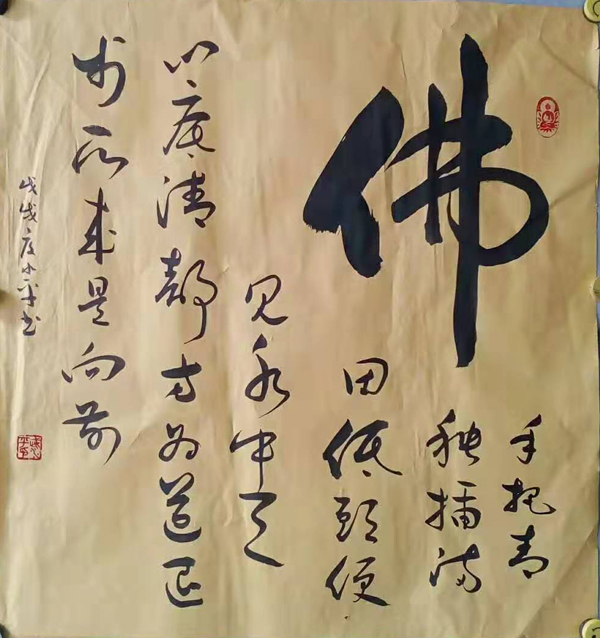 佛
手把青
秧插满
田低头便
见水中天
心底清静方为道退
步原来是向前
戊戌小平书